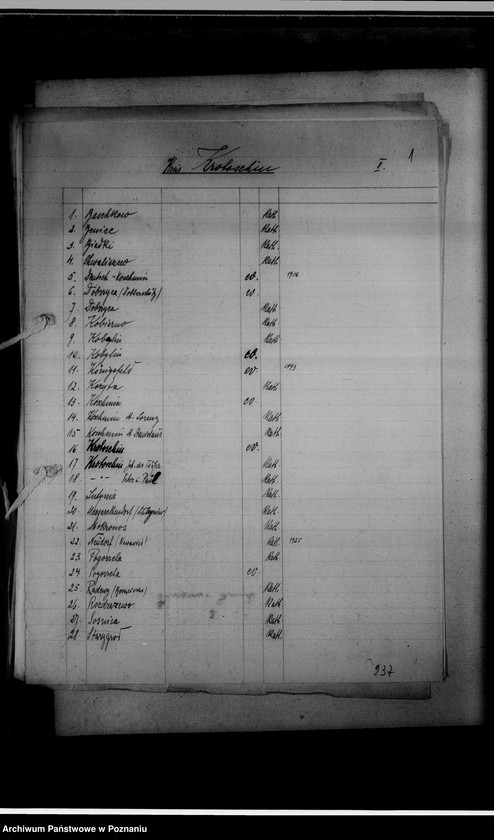 Kreis Krotoschin I. 1
1. Baschkow Kath.
2. Benice Kath.
3. Biadki Kath.
4. Chwaliszew Kath.
5. Deutsch-Koschmin ev. 1916
6. Dobrzyca ev.
7. Dobrzyca Kath.
8. Kobierno Kath.
9. Kobylin Kath.
10. Kobylin ev.
11. Königsfeld ev.
12. Koryta Kath.
13. Koschmin ev
14. Koschmin St. Lorenz Kath.
15 Koschmin St Kath.
16 Krotoschin ev.
17 Krotoschin Kath.
18. - " - Kath.
19. Lutynia Kath.
20. Kath.
21. Mokronos Kath.
22. Neudorf Kath. 1925
23. Pogorzela Kath.
24 Pogorzela ev.
25. Radenz Kath.
26. Rozdrazewo Kath.
27. Sosnica Kath.
28. Starygrod Kath.
237
Archiwum Państwowe w Poznaniu